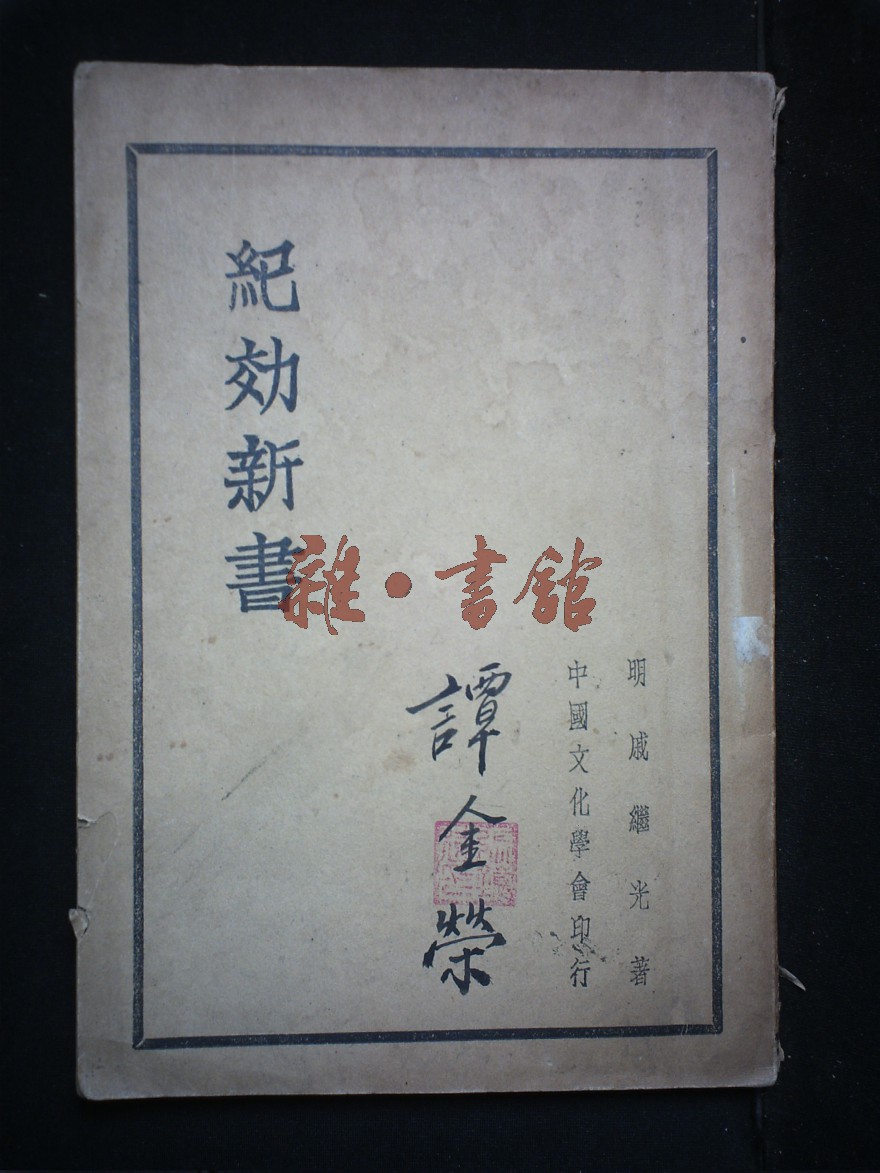 明戚繼光著
中國文化學會印行
譚金榮
紀効新書
雜·書館